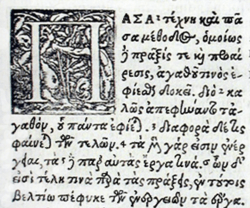 ΠΑΣΑ τέχνη καὶ πᾶ
σα μέθοδος, ὁμοίως
δὲ πρᾶξίς τε καὶ προαί
ρεσις, ἀγαθοῦ τινὸς ἐ
φίεσθαι δοκεῖ. διὸ κα
λῶς ἀπεφήναντο τἀ
γαθὸν, οὗ πάντα ἐφίεται. διαφορὰ δέ τις
φαίνεται τῶν τελῶν. τὰ μὲν γάρ εἰσιν ἐνέρ
γειαι, τὰ δὲ παρ' αὐτὰς ἔργα τινά. ὧν δ'
εἰσὶ τέλη τινὰ παρὰ τὰς πράξεις, ἐν τούτοις
βελτίω πέφυκε τῶν ἐνεργειῶν τὰ ἔργα.